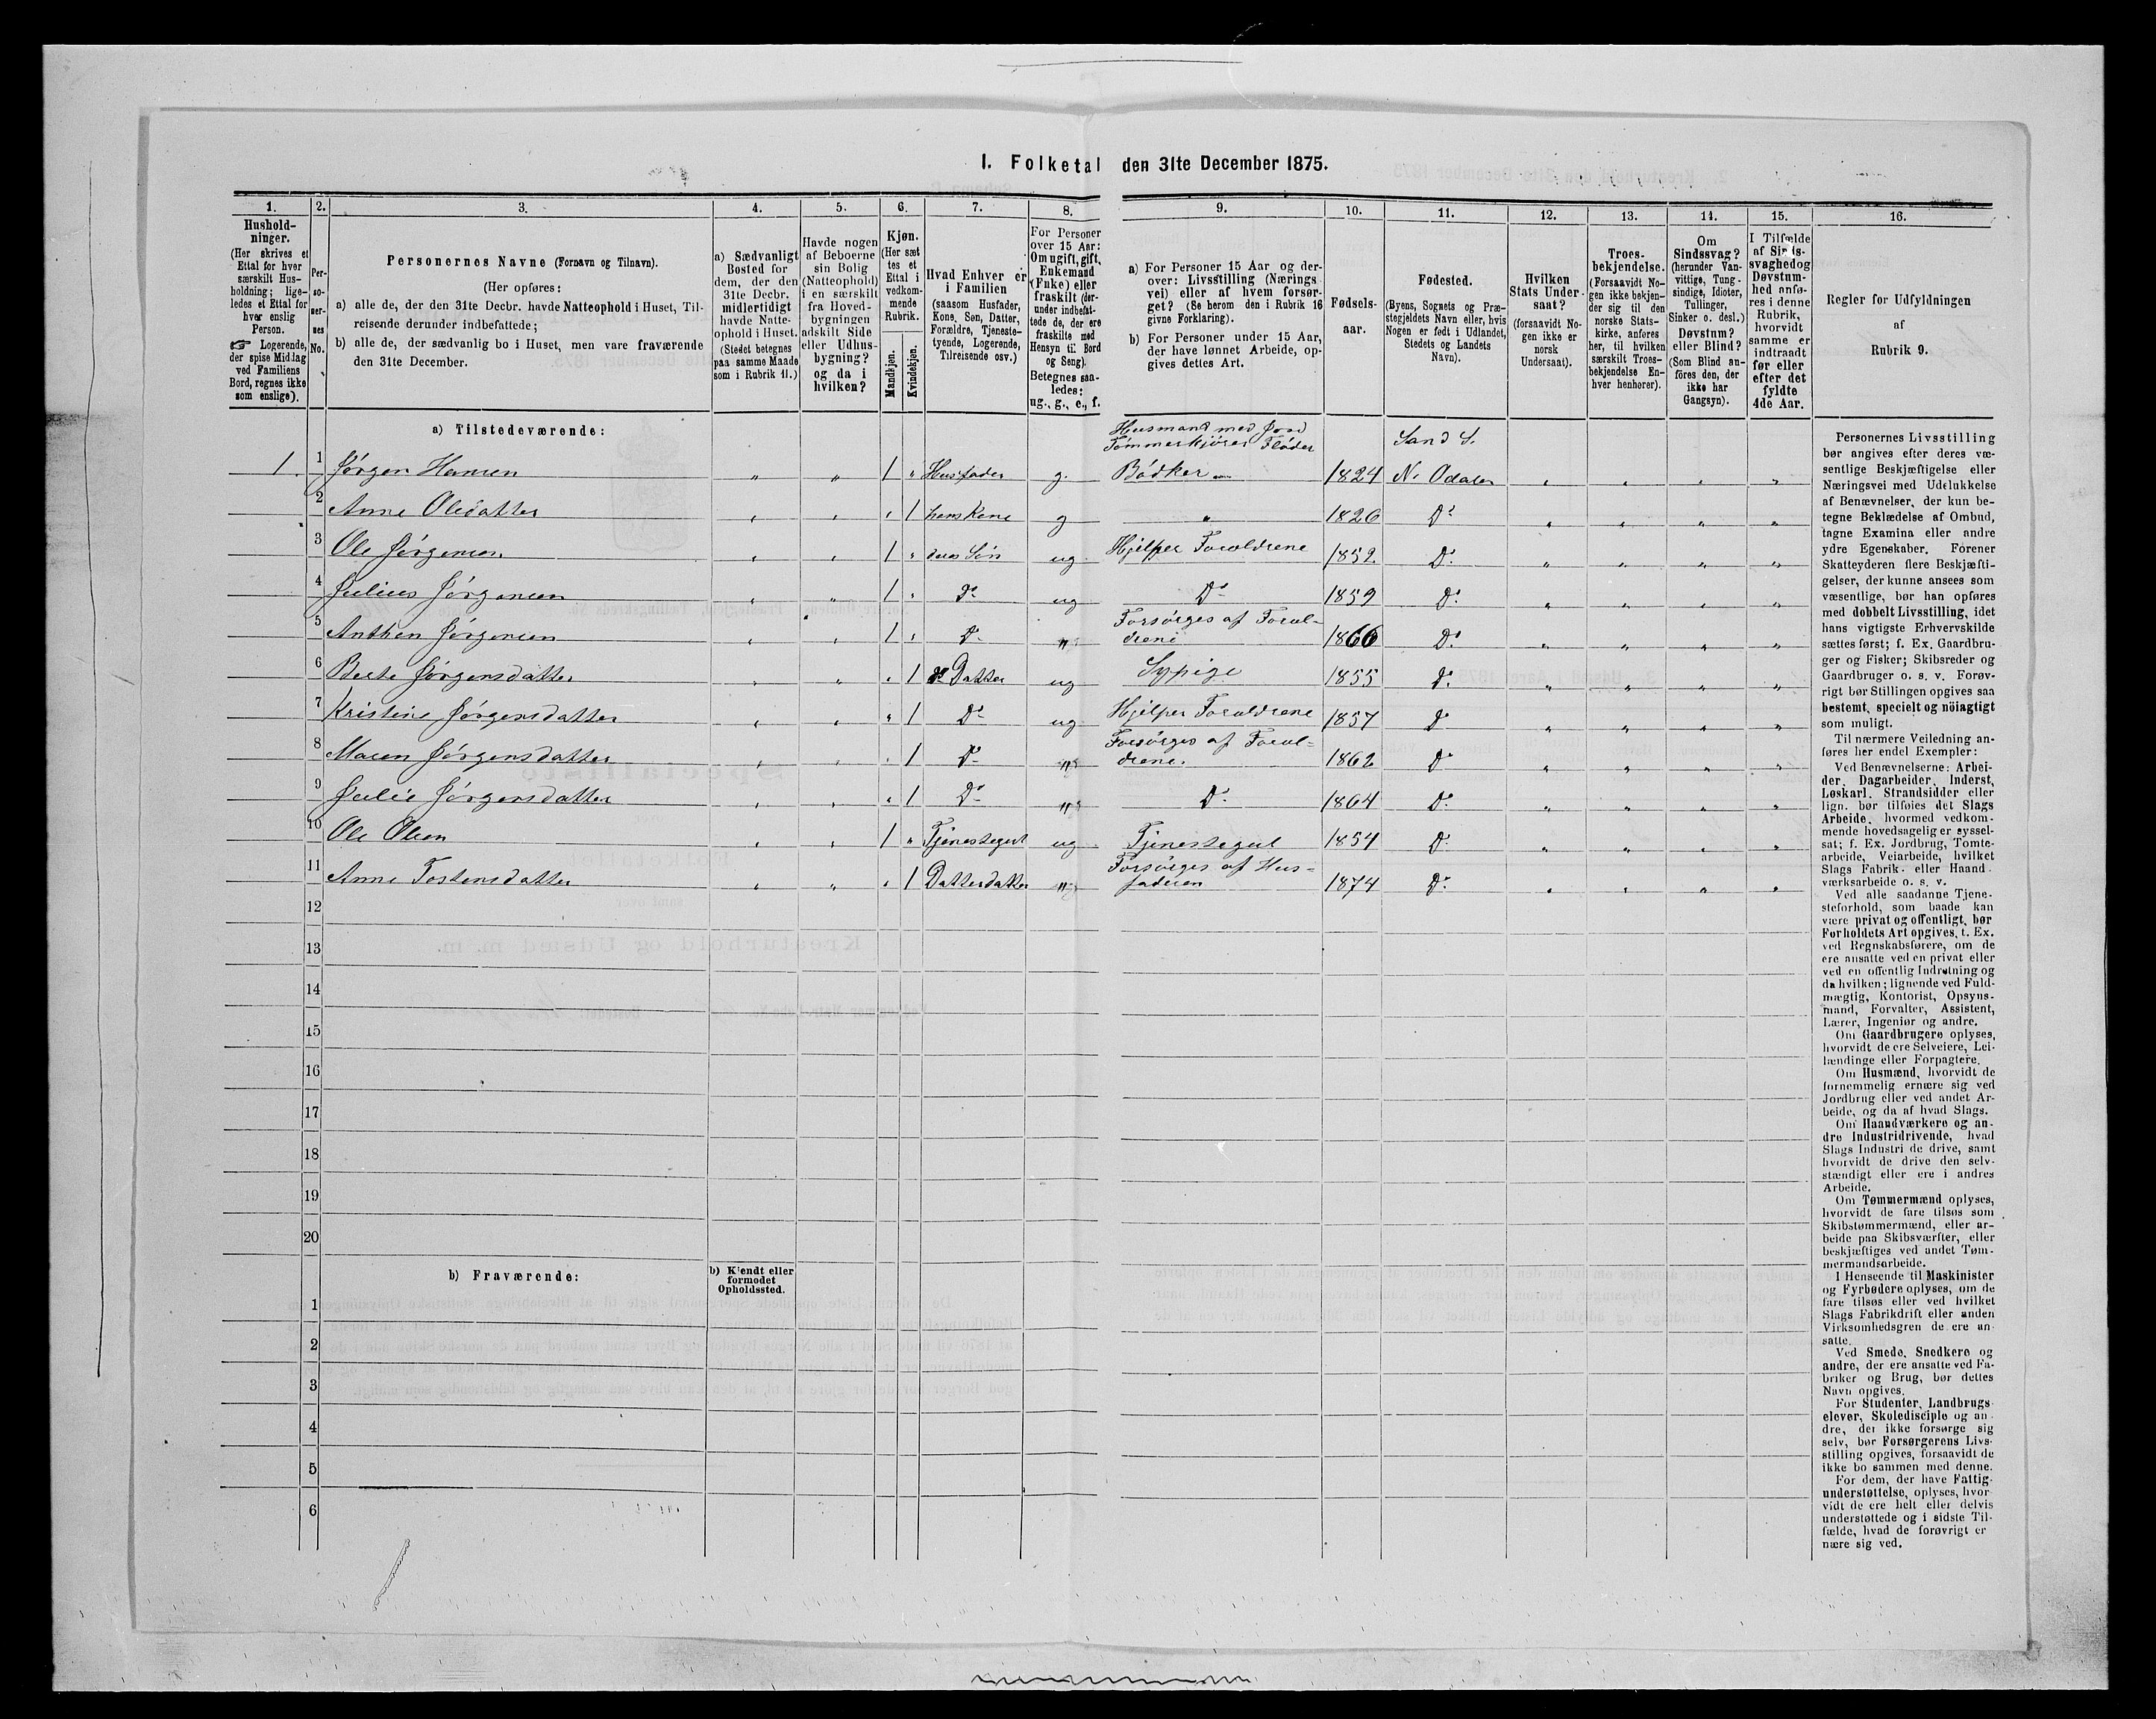 I. Folketal den 31te December 1875.
1. 2. 3. 4. 5. 6. 7. 8. 9. 10. 11. 12. 13. 14. 15. 16.
Hushold-
ninger.
(Her skrives et
Ettal for hver
særskilt Hus-
holdning; lige-
ledes et Ettal for
hver enslig
Person.
☞ Logerende,
der spise Middag
ved Familiens
Bord, regnes ikke
som enslige).
Per-
so-
ner-
nes
No.
Personernes Navne (Fornavn og Tilnavn).
(Her opføres:
a) alle de, der den 31te Decbr. havde Natteophold i Huset, Til-
reisende derunder indbefattede;
b) alle de, der sædvanlig bo i Huset, men vare fraværende
den 31te December.
a) Sædvanligt
Bosted for
dem, der den
31te Decbr.
midlertidigt
havde Natte-
ophold i Huset.
(Stedet betegnes
paa samme Maade
som i Rubrik 11.)
Havde nogen
af Beboerne
sin Bolig
(Natteophold)
i en særskilt
fra Hoved-
bygningen
adskilt Side
eller Udhus-
bygning?
og da i
hvilken?
Kjøn.
(Her sæt
tes et
Ettal i
vedkom-
mende
Rubrik.
Mandkjøn.
Kvindekjøn.
Hvad Enhver er
i Familien
(saasom Husfader,
Kone, Søn, Datter,
Forældre, Tjeneste-
tyende, Logerende,
Tilreisende osv.)
For Personer
over 15 Aar:
Om ugift, gift,
Enkemand
(Enke) eller
fraskilt (der-
under indbefat-
tede de, der ere
fraskilte med
Hensyn til Bord
og Seng).
Betegnes saa-
ledes:
ug., g., e., f.
a) For Personer 15 Aar og der-
over: Livsstilling (Nærings-
vei) eller af hvem forsør-
get? (Se herom den i Rubrik 16
givne Forklaring).
b) For Personer under 15 Aar,
der have lønnet Arbeide, op-
gives dettes Art.
Fødsels-
aar.
Fødested.
(Byens, Sognets og Præ-
stegjeldets Navn eller, hvis
Nogen er født i Udlandet,
Stedets og Landets
Navn).
Hvilken
Stats Under-
saat?
(forsaavidt No-
gen ikke er
norsk
Undersaat).
Troes-
bekjendelse.
(Forsaavidt No-
gen ikke bekjen-
der sig til den
norske Stats-
kirke, anføres
her, til hvilken
særskilt Troes-
bekjendelse En-
hver henhører).
Om
Sindssvag?
(herunder Van-
vittige, Tung-
sindige, Idioter,
Tullinger,
Sinker o. desl.)
Døvstum?
eller Blind?
(Som Blind an-
føres den, der
ikke har
Gangsyn).
I Tilfælde
af Sinds-
svaghed og
Døvstum-
hed anfø-
res i denne
Rubrik,
hvorvidt
samme er
indtraadt
før eller
efter det
fyldte
4de Aar.
Regler for Udfyldningen
af
Rubrik 9.
a) Tilstedeværende:
Husmand med Jord
Tømmerkjører Fløder
Sand S.
1. 1 Jørgen Hansen " " 1 " Husfader g. Bødker 1824 N. Odalen " " " "
2 Anne Olsdatter " " " 1 hans Kone g " 1826 Do " " " "
3 Ole Jørgensen " " 1 " deres Søn ug Hjelper Forældrene 1852. Do " " " "
4 Julius Jørgensen " " 1 " Do ug Do 1859 Do " " " "
5 Anthon Jørgensen " " 1 " Do " Forsørges af Foræl-
drene 1866 Do " " " "
6 Berte Jørgensdatter " " " 1 Do Datter ug Sypige 1855 Do " " " "
7 Kristine Jørgensdatter " " " 1 Do ug Hjelper Forældrene 1857 Do " " " "
8 Maren Jørgensdatter " " " 1 Do " Forsørges af Foræl-
drene. 1862 Do " " " "
9 Julie Jørgensdatter " " " 1 Do " Do 1864 Do " " " "
10 Ole Olsen " " 1 " Tjenestegut ug Tjenestegut 1854 Do " " " "
11 Anne Tostensdatter " " " 1 Datterdatter " Forsørges af Hus-
faderen 1874 Do " " " "
12
13
14
15
16
17
18
19
20
b) Fraværende:
b) Kjendt eller
formodet
Opholdssted.
1
2
3
4
5
6
Personernes Livsstilling
bør angives efter deres væ-
sentlige Beskjæftigelse eller
Næringsvei med Udelukkelse
af Benævnelser, der kun be-
tegne Beklædelse af Ombud,
tagne Examina eller andre
ydre Egenskaber. Forener
Skatteyderen flere Beskjæfti-
gelser, der kunne ansees som
væsentlige, bør han opføres
med dobbelt Livsstilling, idet
hans vigtigste Erhvervskilde
sættes først; f. Ex. Gaardbru-
ger og Fisker; Skibsreder og
Gaardbruger o. s. v. Forøv-
rigt bør Stillingen opgives saa
bestemt, specielt og nöiagtigt
som muligt.
Til nærmere Veiledning an-
føres her endel Exempler:
Ved Benævnelserne: Arbei-
der, Dagarbeider, Inderst,
Løskarl, Strandsidder eller
lign. bør tilføies det Slags
Arbeide, hvormed vedkom-
mende hovedsagelig er syssel-
sat; f. Ex. Jordbrug, Tomte-
arbeide, Veiarbeide, hvilket
Slags Fabrik- eller Haand-
værksarbeide o. s. v.
Ved alle saadanne Tjene-
steforhold, som baade kan
være privat og offentligt, bør
Forholdets Art opgives, t. Ex.
ved Regnskabsførere, om de
ere ansatte ved en privat eller
ved en offentlig Indretning og
da hvilken; lignende ved Fuld-
mægtig, Kontorist, Opsyns-
mand, Forvalter, Assistent,
Lærer, Ingeniør og andre.
Om Gaardbrugere oplyses,
hvorvidt de ere Selveiere, Lei-
lændinge eller Forpagtere.
Om Husmænd, hvorvidt de
fornemmelig ernære sig ved
Jordbrug eller ved andet Ar-
beide, og da af hvad Slags.
Om Haandværkere og an-
dre Industridrivende, hvad
Slags Industri de drive, samt
hvorvidt de drive den selv-
stændigt eller ere i andres
Arbeide.
Om Tømmermænd oplyses,
hvorvidt de fare tilsøs som
Skibstømmermænd, eller ar-
beide paa Skibsværfter, eller
beskjæftiges ved andet Tøm-
mermandsarbeide.
I Henseende til Maskinister
og Fyrbødere oplyses, om de
fare tilsøs eller ved hvilket
Slags Fabrikdrift eller anden
Virksomhedsgren de ere an-
satte.
Ved Smede, Snedkere og
andre, der ere ansatte ved Fa-
briker og Brug, bør dettes
Navn opgives.
For Studenter, Landbrugs-
elever, Skoledisciple og an-
dre, der ikke forsørge sig
selv, bør Forsørgerens Livs-
stilling opgives, forsaavidt de
ikke bo sammen med denne.
For dem, der have Fattig-
understøttelse, oplyses, hvor-
vidt de ere helt eller delvis
understøttede og i sidste Til-
fælde, hvad de forøvrigt er
nære sig ved.